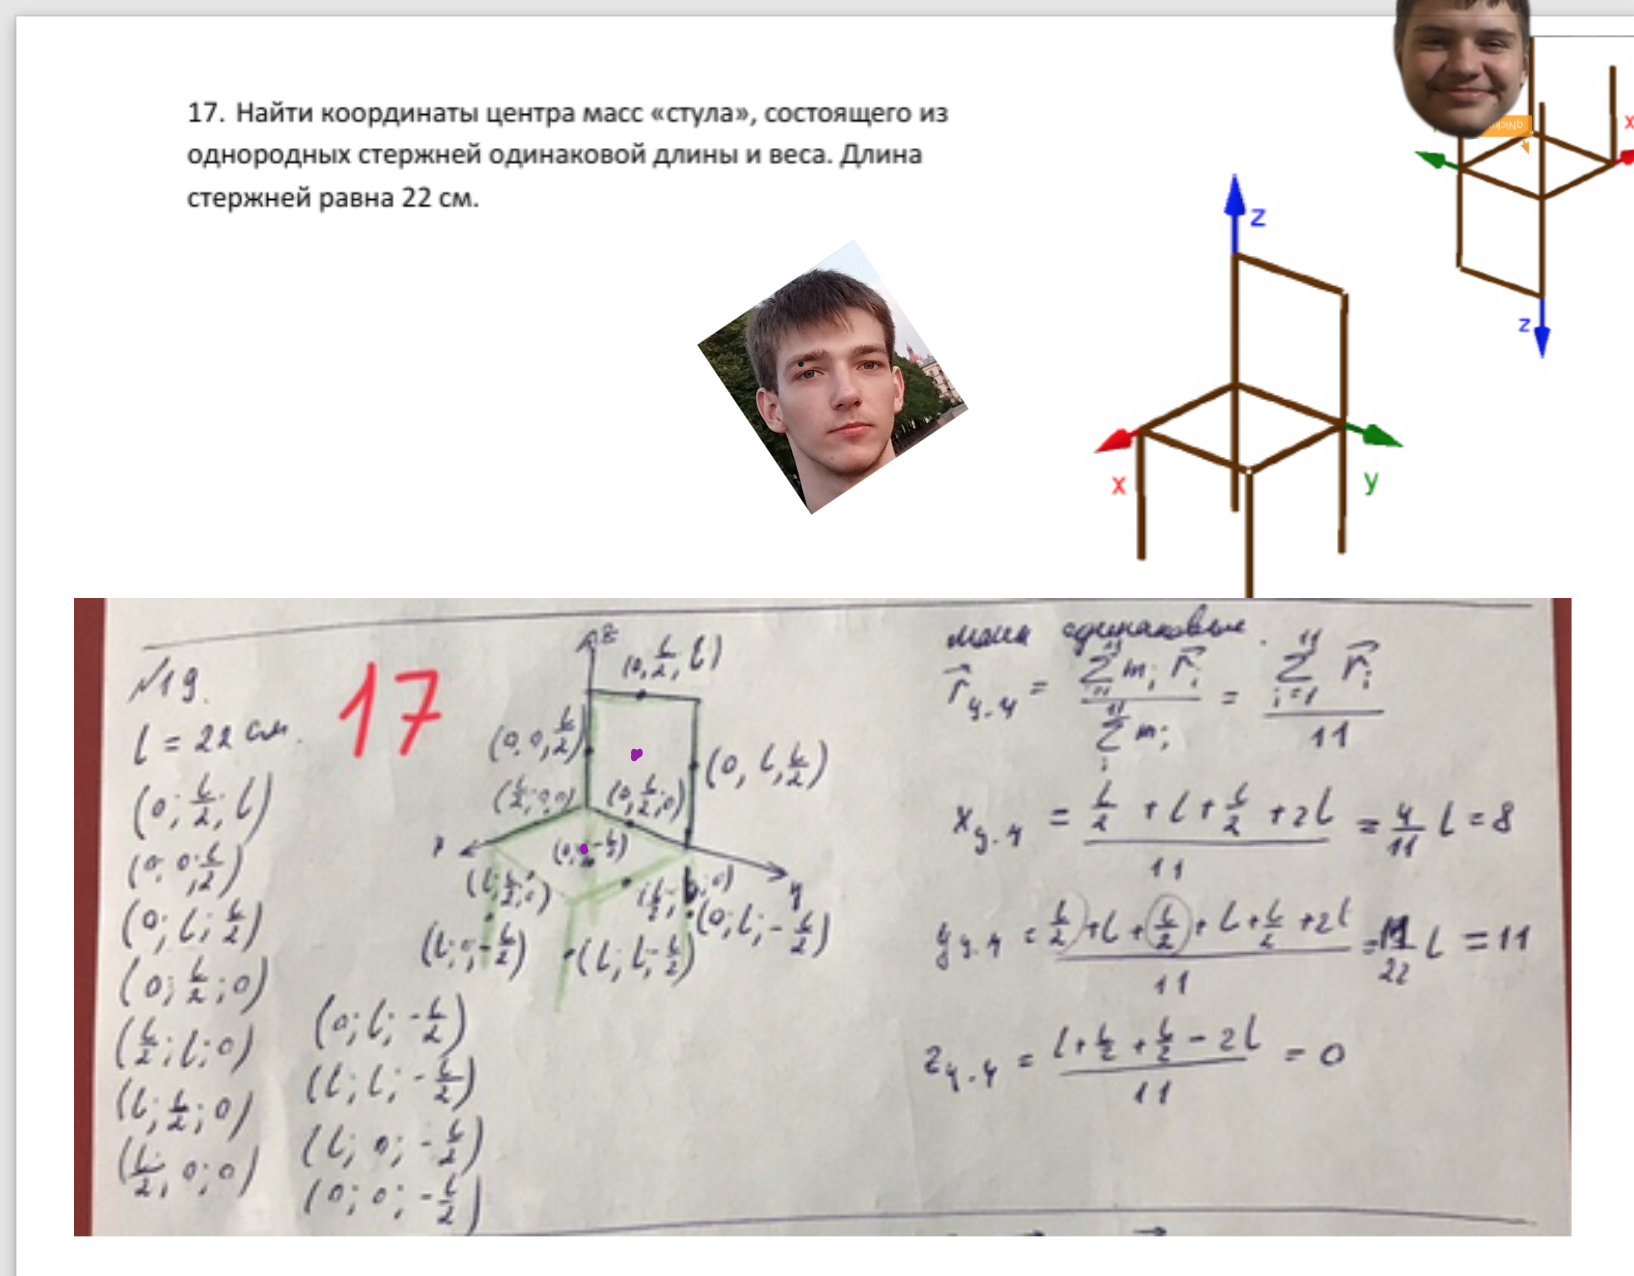 17. Найти координаты центра масс «стула», состоящего из
однородных стержней одинаковой длины и веса. Длина
стержней равна 22 см.
z
x
y
x
z
№19.
17
l = 22 см.
(0; l/2; l)
(0; 0; l/2)
(0; l; l/2)
(0; l/2; 0)
(l/2; l; 0)
(l; l/2; 0)
(l/2; 0; 0)
(0; l; -l/2)
(l; l; -l/2)
(l; 0; -l/2)
(0; 0; -l/2)
z
(0, l/2, l)
(0, 0, l/2)
(0, l, l/2)
(l/2; 0; 0)
(0; l/2; 0)
x
y
(0; l; -l/2)
(l; l; -l/2)
массы одинаковые.
r⃗ц.м = Σ mᵢ r⃗ᵢ / Σ mᵢ = Σ r⃗ᵢ / 11
xц.м = (l/2 + l + l/2 + 2l) / 11 = 4/11 l = 8
yц.м = (l/2 + l + l/2 + l + l/2 + 2l) / 11 = 11/22 l = 11
zц.м = (l + l/2 + l/2 - 2l) / 11 = 0